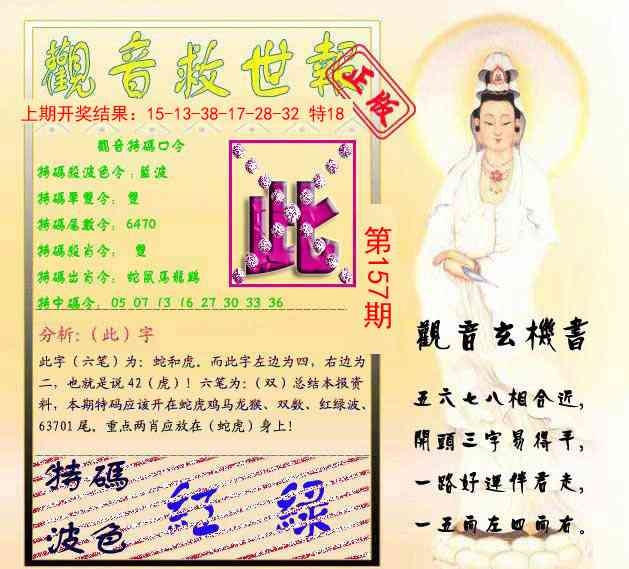 觀音救世報
正版
上期开奖结果：15-13-38-17-28-32 特18
觀音特碼口令
特碼殺波色令：藍波
特碼單雙令： 雙
特碼尾數令：6470
特碼殺肖令： 雙
特碼出肖令：蛇鼠馬龍鷄
特中碼令：05 07 13 16 27 30 33 36
此
第157期
分析:（此）字
此字（六笔）为：蛇和虎。而此字左边为四，右边为
二，也就是说42（虎）！六笔为：（双）总结本报资
料，本期特码应该开在蛇虎鸡马龙猴、双数、红绿波、
63701尾。重点两肖应放在（蛇虎）身上！
特碼
波色
紅 綠
觀音玄機書
五六七八相合近，
開頭三字易得平，
一路好運伴君走，
一五而左四而右。